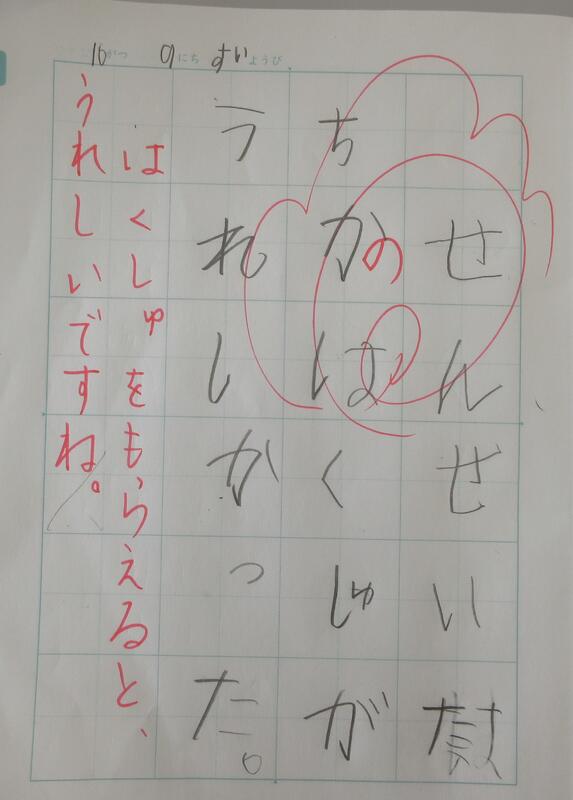 10がつ 9にち すいようび
せんぜいた
ちかのはくじゅが
うれしかった。
はくしゅをもらえると、
うれしいですね。